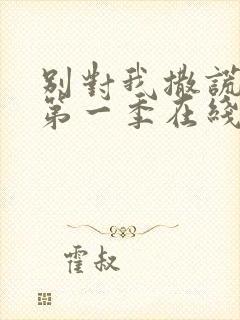 別對我撒謊
第一季在綫
霍叔